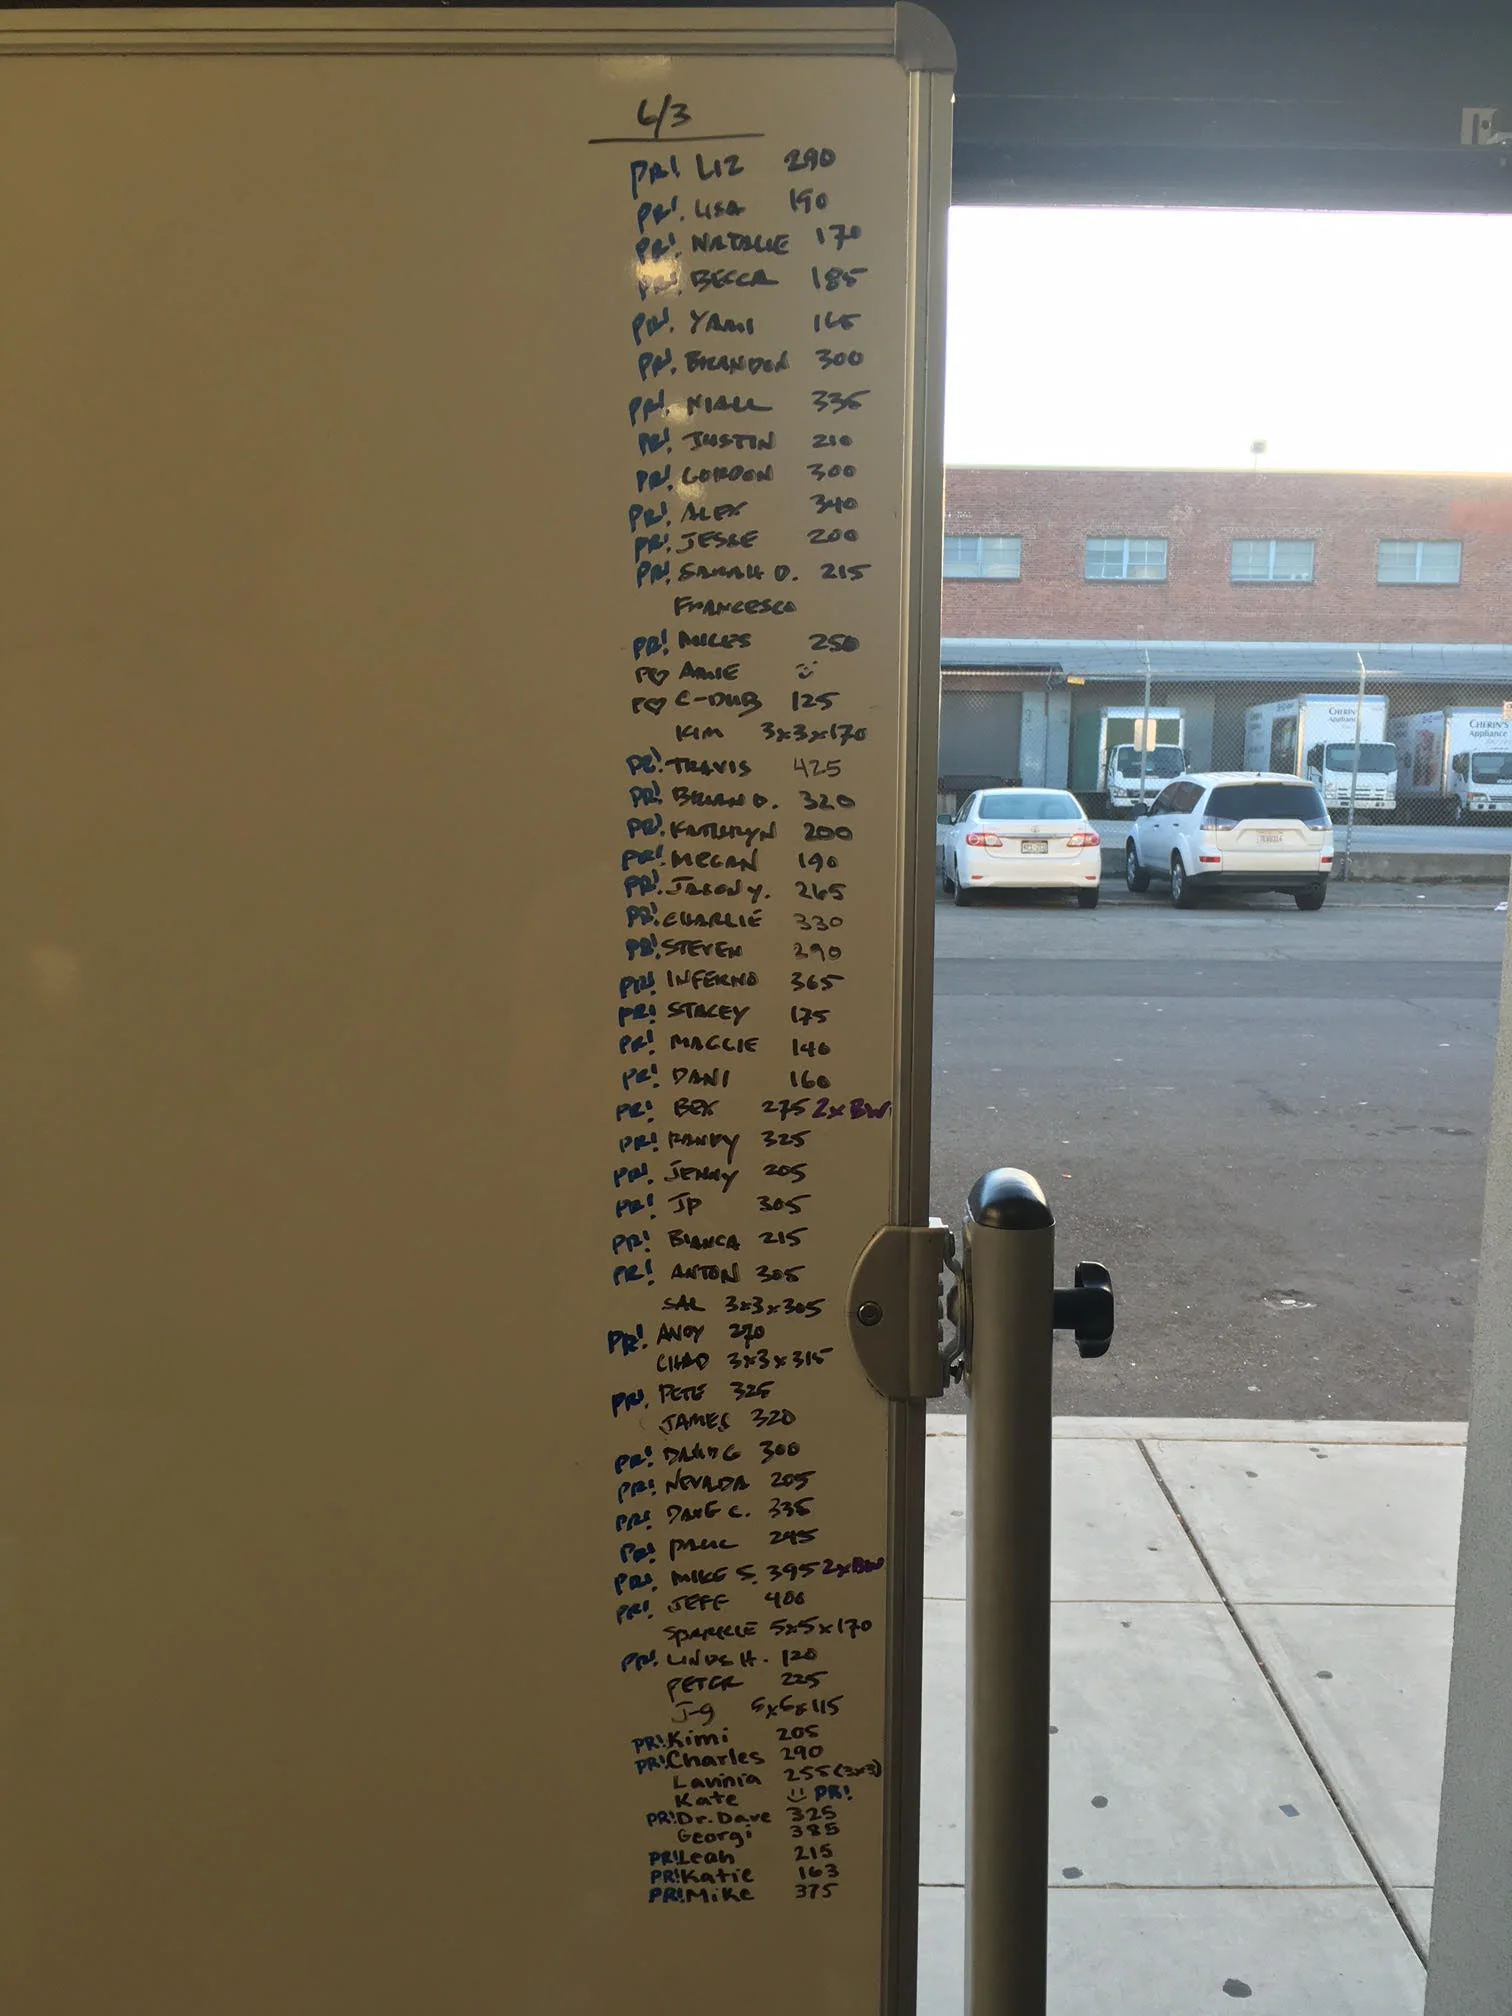 6/3
PR! LIZ 290
PR! LISA 190
PR! NATALIE 170
PR! BECCA 185
PR! YAMI 165
PR! BRANDON 300
PR! NIALL 335
PR! JUSTIN 210
PR! GORDON 300
PR! ALEX 340
PR! JESSE 200
PR! SARAH D. 215
FRANCESCO
PR! MILES 250
P♡ AMIE
P♡ C-DUB 125
KIM 3x3x170
PR! TRAVIS 425
PR! BRIAN D. 320
PR! KATHRYN 200
PR! MEGAN 190
PR! JASON Y. 265
PR! CHARLIE 330
PR! STEVEN 390
PR! INFERNO 365
PR! STACEY 175
PR! MAGGIE 140
PR! DANI 160
PR! BEX 275 2xBW
PR! RANDY 325
PR! JENNY 205
PR! JP 305
PR! BIANCA 215
PR! ANTON 305
SAL 3x3x305
PR! ANDY 270
CHAD 3x3x315
PR! PETE 325
JAMES 320
PR! DAVID G 300
PR! NEVADA 205
PR! DAVE C. 335
PR! PAUL 245
PR! MIKE S. 395 2xBW
PR! JEFF 400
SPARKLE 5x5x170
PR! LINDS H. 120
PETER 225
J-9 5x5x115
PR! Kimi 205
PR! Charles 290
Lavinia 255 (3x3)
Kate PR!
PR! Dr. Dave 325
Georgi 385
PR! Leah 215
PR! Katie 163
PR! Mike 375
CHERIN'S Appliance
CHERIN'S Appliance